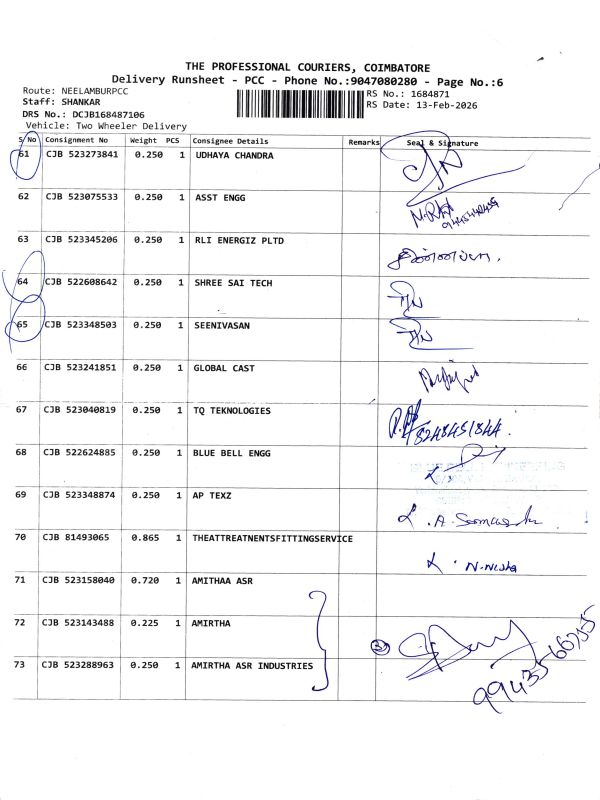 THE PROFESSIONAL COURIERS, COIMBATORE
Delivery Runsheet - PCC - Phone No.:9047080280 - Page No.:6
Route: NEELAMBURPCC
RS No.: 1684871
Staff: SHANKAR
RS Date: 13-Feb-2026
DRS No.: DCJB168487106
Vehicle: Two Wheeler Delivery
S No Consignment No Weight PCS Consignee Details Remarks Seal & Signature
61 CJB 523273841 0.250 1 UDHAYA CHANDRA
62 CJB 523075533 0.250 1 ASST ENGG
63 CJB 523345206 0.250 1 RLI ENERGIZ PLTD
64 CJB 522608642 0.250 1 SHREE SAI TECH
65 CJB 523348503 0.250 1 SEENIVASAN
66 CJB 523241851 0.250 1 GLOBAL CAST
67 CJB 523040819 0.250 1 TQ TEKNOLOGIES
8248451844.
68 CJB 522624885 0.250 1 BLUE BELL ENGG
69 CJB 523348874 0.250 1 AP TEXZ
70 CJB 81493065 0.865 1 THEATTREATNENTSFITTINGSERVICE
N-Nisha
71 CJB 523158040 0.720 1 AMITHAA ASR
72 CJB 523143488 0.225 1 AMIRTHA
73 CJB 523288963 0.250 1 AMIRTHA ASR INDUSTRIES